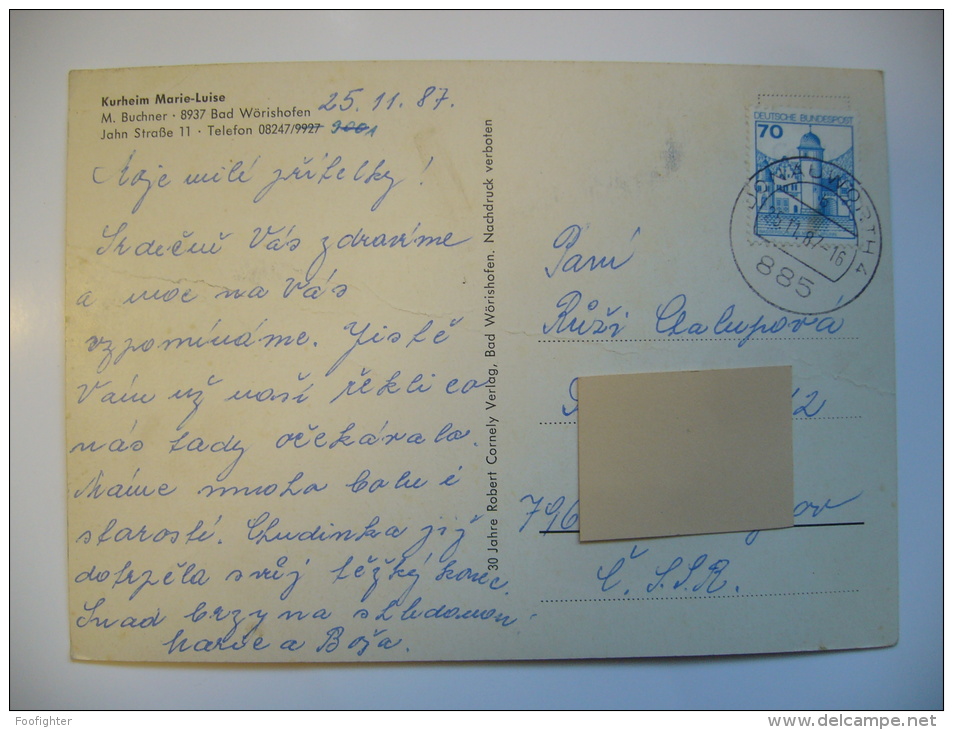 Kurheim Marie-Luise
M. Buchner · 8937 Bad Wörishofen
Jahn Straße 11 · Telefon 08247/9927 9001
25. 11. 87.
Moje milé přítelky!
Srdečně Vás zdravíme
a moc na Vás
vzpomínáme. Jistě
Vám už naši řekli co
nás tady očekávalo.
Máme mnoho bolu i
starostí. Chudinka již
dotrpěla svůj těžký konec.
Snad brzy na shledanou
a Boža.
30 Jahre Robert Cornely Verlag, Bad Wörishofen. Nachdruck verboten
DEUTSCHE BUNDESPOST
70
25.11.87-16
885
Paní
Růži Chalupová
Č.S.S.R.
Foofighter
www.delcampe.net